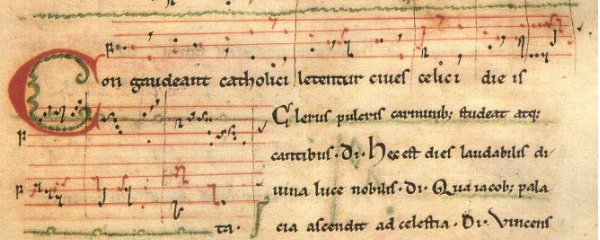 Congaudeant catholici letentur ciues celici die is
Clerus pulcris carminib; studeat atq;
cantibus · Di · Hec est dies laudabilis di
uina luce nobilis · di · Qua iacob; pala
ta · cia ascendit ad celestia · Di · Vincens